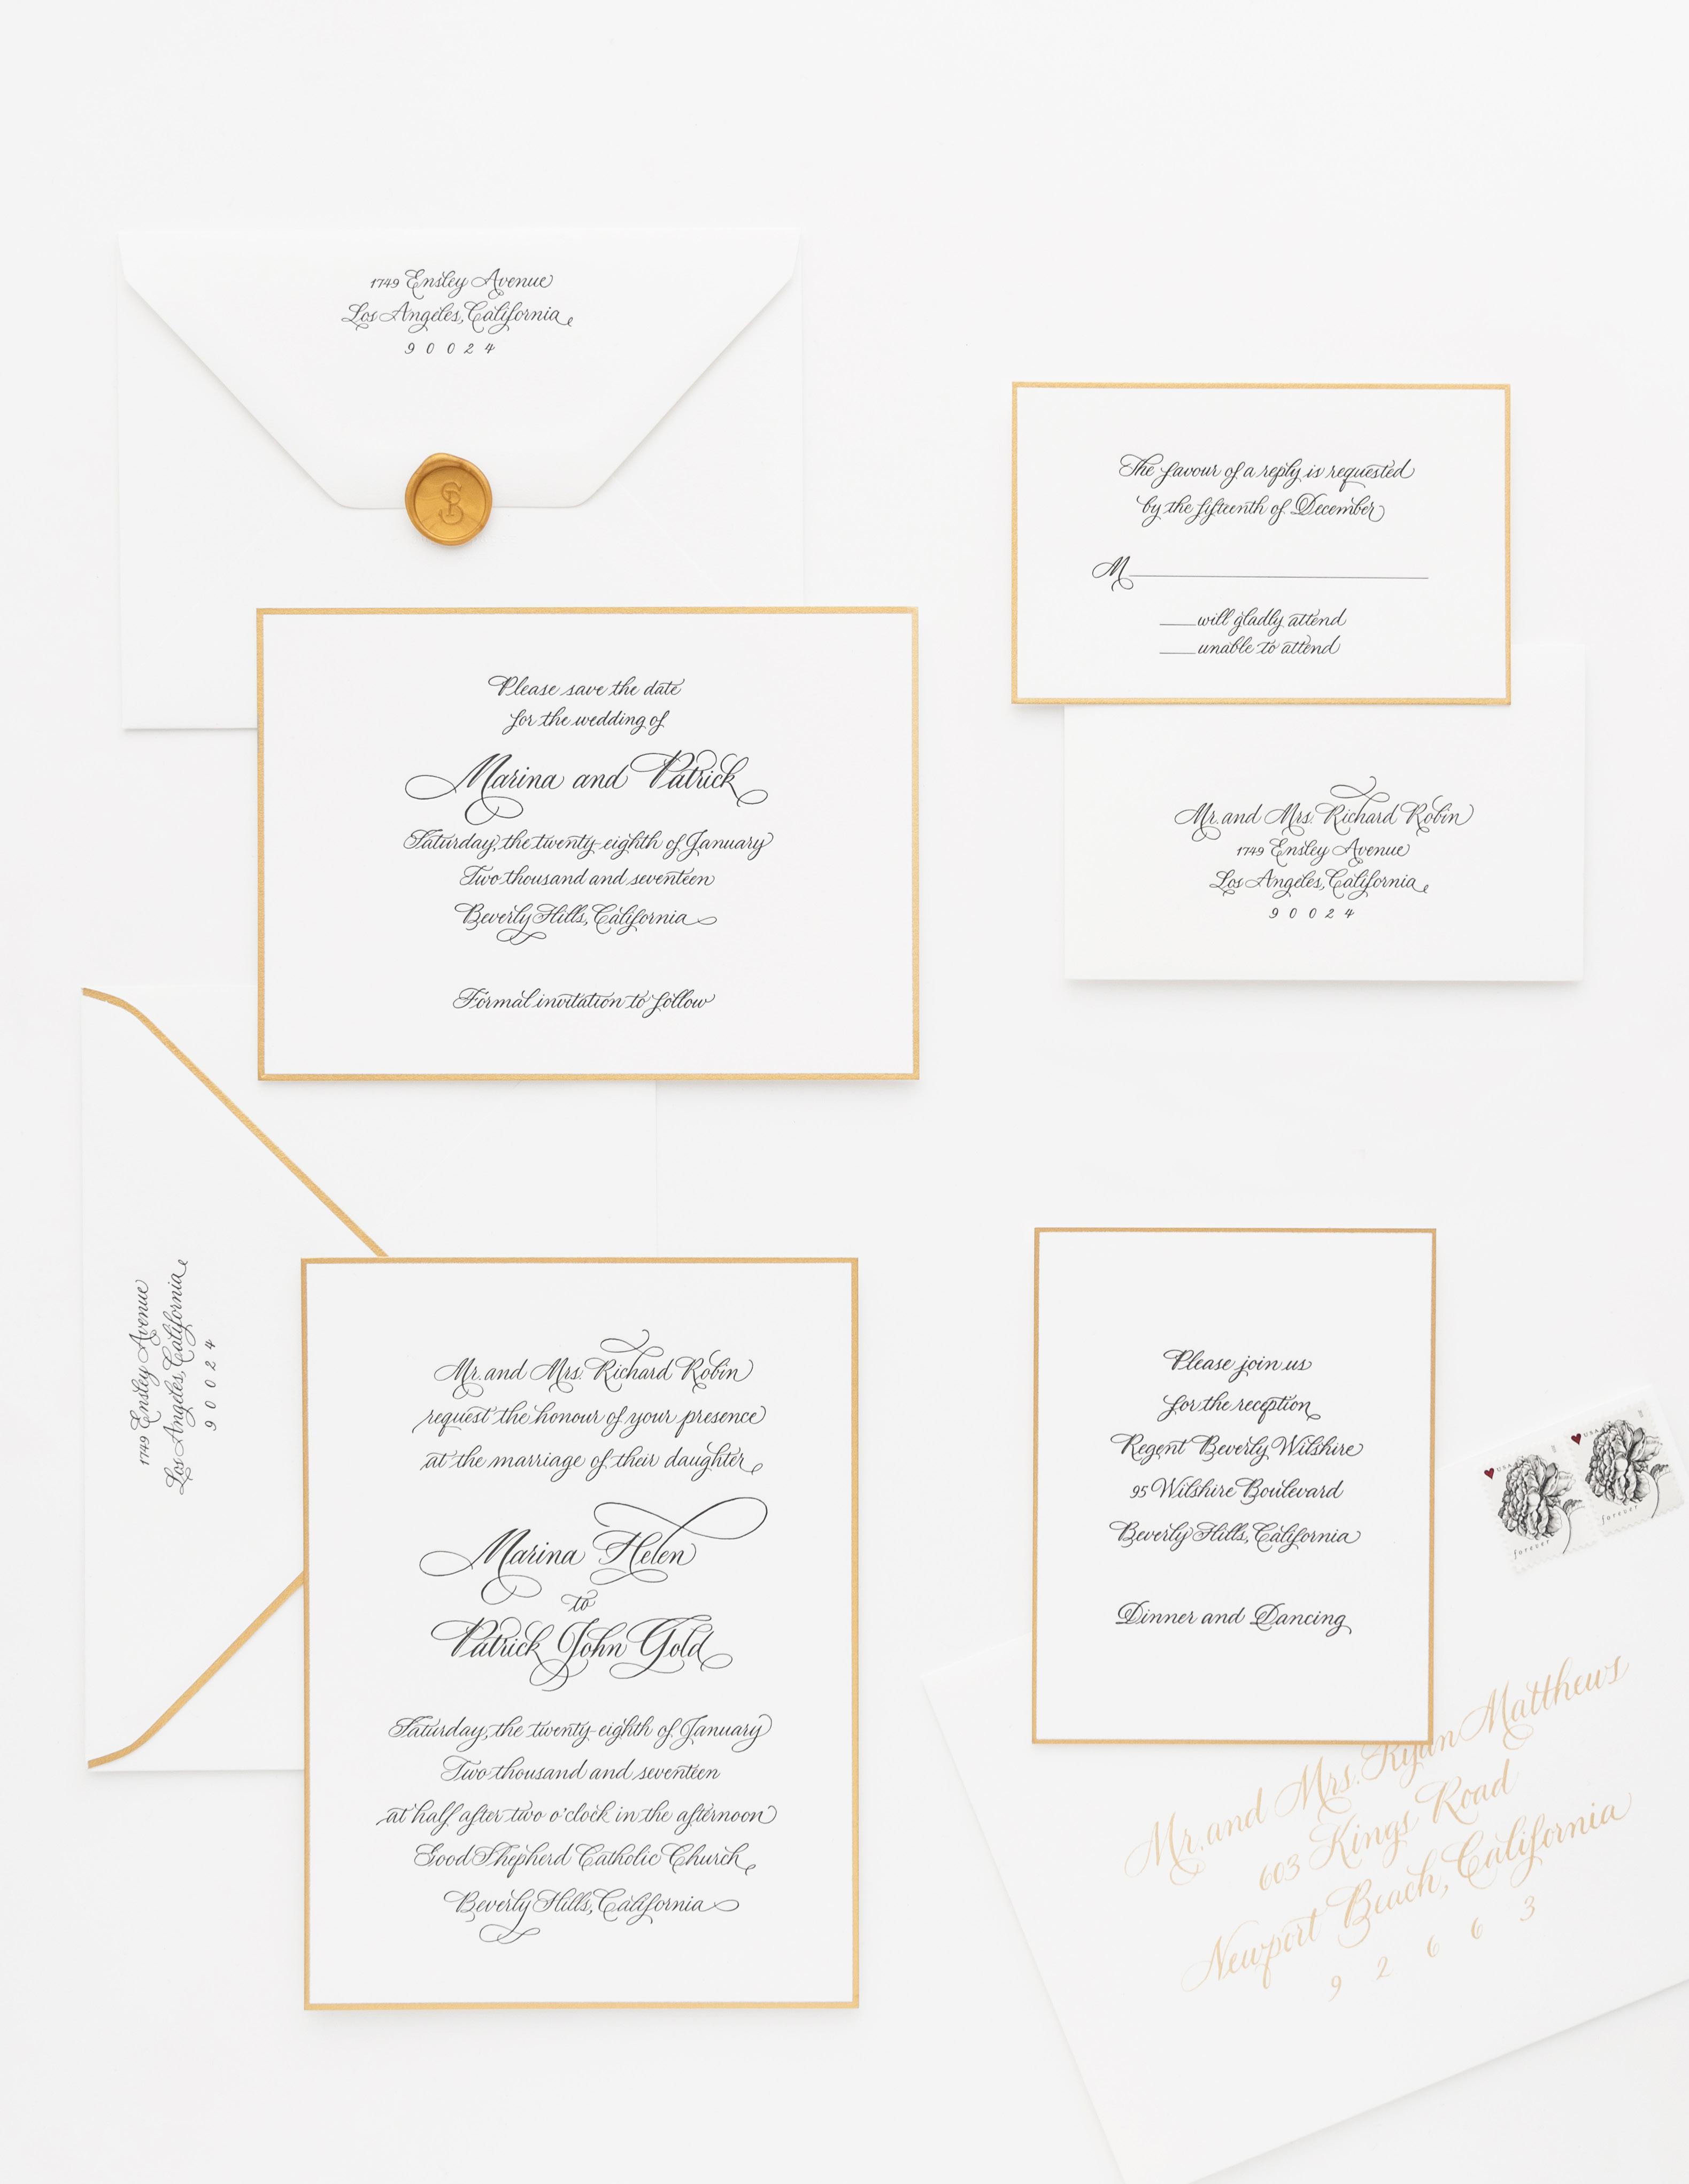 1749 Ensley Avenue
Los Angeles, California
90024
Please save the date
for the wedding of
Marina and Patrick
Saturday, the twenty-eighth of January
Two thousand and seventeen
Beverly Hills, California
Formal invitation to follow
The favour of a reply is requested
by the fifteenth of December
M
will gladly attend
unable to attend
Mr. and Mrs. Richard Robin
1749 Ensley Avenue
Los Angeles, California
90024
1749 Ensley Avenue
Los Angeles, California
90024
Mr. and Mrs. Richard Robin
request the honour of your presence
at the marriage of their daughter
Marina Helen
to
Patrick John Gold
Saturday, the twenty-eighth of January
Two thousand and seventeen
at half after two o'clock in the afternoon
Good Shepherd Catholic Church
Beverly Hills, California
Please join us
for the reception
Regent Beverly Wilshire
95 Wilshire Boulevard
Beverly Hills, California
Dinner and Dancing
USA
forever
USA
forever
Mr. and Mrs. Ryan Matthews
603 Kings Road
Newport Beach, California
92663